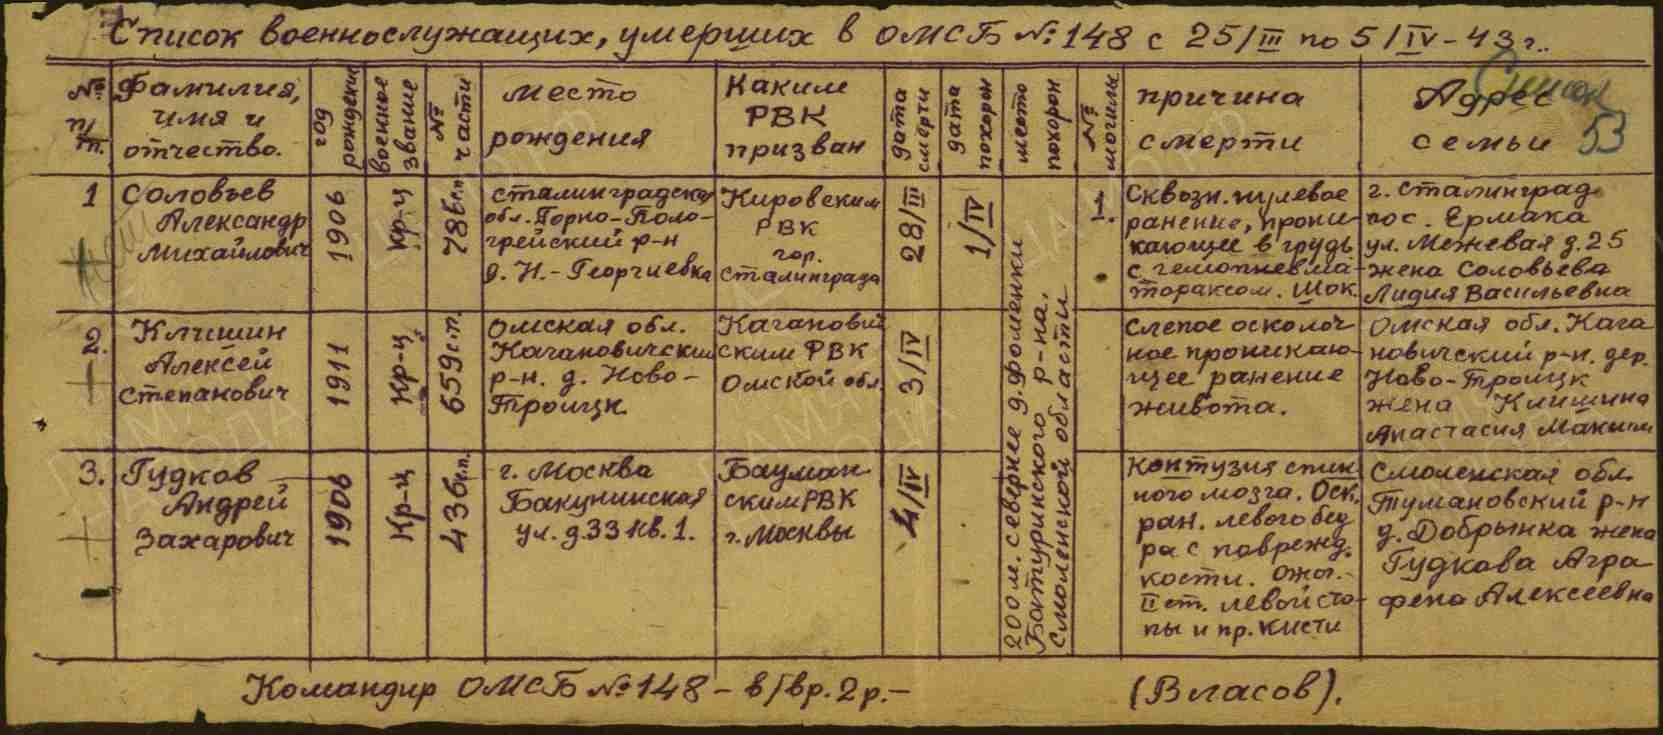 Список военнослужащих, умерших в ОМСБ №148 с 25/III по 5/IV-43г.
№ п/п.
Фамилия, имя и отчество.
год рождения
военное звание
№ части
место рождения
Каким РВК призван
дата смерти
дата похорон
место похорон
№ могилы
причина смерти
Адрес семьи
Список
53
1
Соловьев
Александр
Михайлович
1906
Кр-ц
786п.п.
Сталинградская
обл. Горно-Поло-
грейский р-н
д. Н.-Георгиевка
Кировским
РВК
гор.
Сталинграда
28/III
1/IV
200 м. севернее д. Фоменки
Батуринского р-на.
Смоленской области
1
Сквозн. пулевое
ранение, прони-
кающее в грудь
с гемопневма-
тораксом. Шок.
г. Сталинград
пос. Ермака
ул. Межевая д.25
жена Соловьева
Лидия Васильевна
2.
Клишин
Алексей
Степанович
1911
Кр-ц
659с.п.
Омская обл.
Кагановичский
р-н. д. Ново-
Троицк
Каганович
ским РВК
Омской обл.
3/IV
Слепое осколоч
ное проникаю-
щее ранение
живота.
Омская обл. Кага
новичский р-н. дер.
Ново-Троицк
жена Клишина
Анастасия Маким
3.
Гудков
Андрей
Захарович
1906
Кр-ц
436п.п.
г. Москва
Бакунинская
ул. д.33 кв.1.
Бауман
ским РВК
г. Москвы
4/IV
Контузия спин
ного мозга. Оск.
ран. левого бед
ра с поврежд.
кости. Ожог.-
II ст. левой сто-
пы и пр. кисти
Смоленская обл.
Тумановский р-н
д. Добрынка жена
Гудкова Агра
фена Алексеевна
Командир ОМСБ №148 - в/вр. 2р.- (Власов).